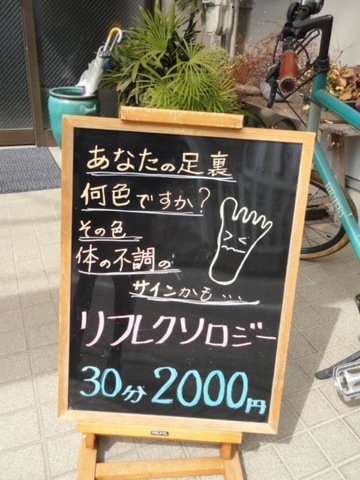 あなたの足裏
何色ですか？
その色
体の不調の
サインかも…
リフレクソロジー
30分 2000円